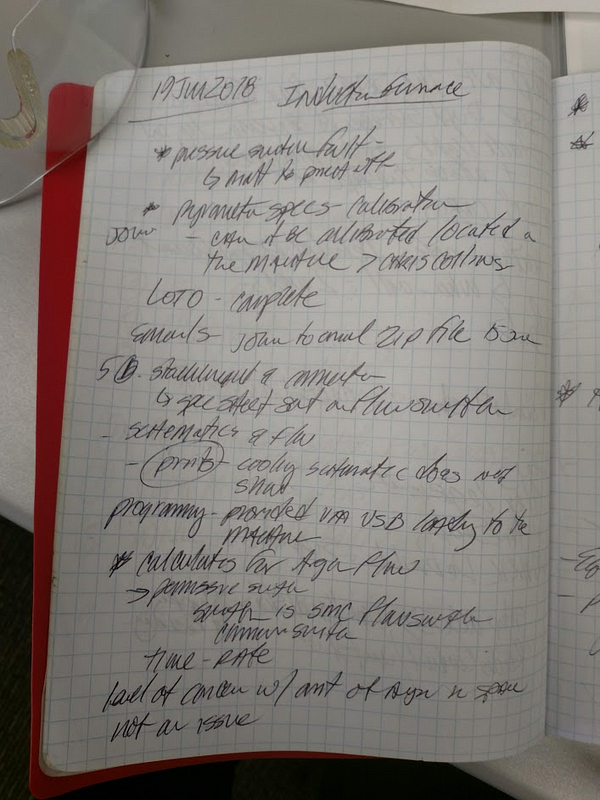 19 Jun 2018 Induction Furnace
* pressure switch fault -
↳ matt to print off
* Pyrometer specs - calibration
John - can it be calibrated located on
the machine >
LOTO - complete
Emails - John to email zip file to
5
↳ spec sheet sent on Flowswitch
- schematics & flow
- prints - cooling schematic does not
show
programming - provided via USB locally to the
machine
* calculates for Argon Flow
→ permissive switch
switch is SMC Flowswitch
common switch
time - RATE
level of concern w/ amt of Argon in space
not an issue